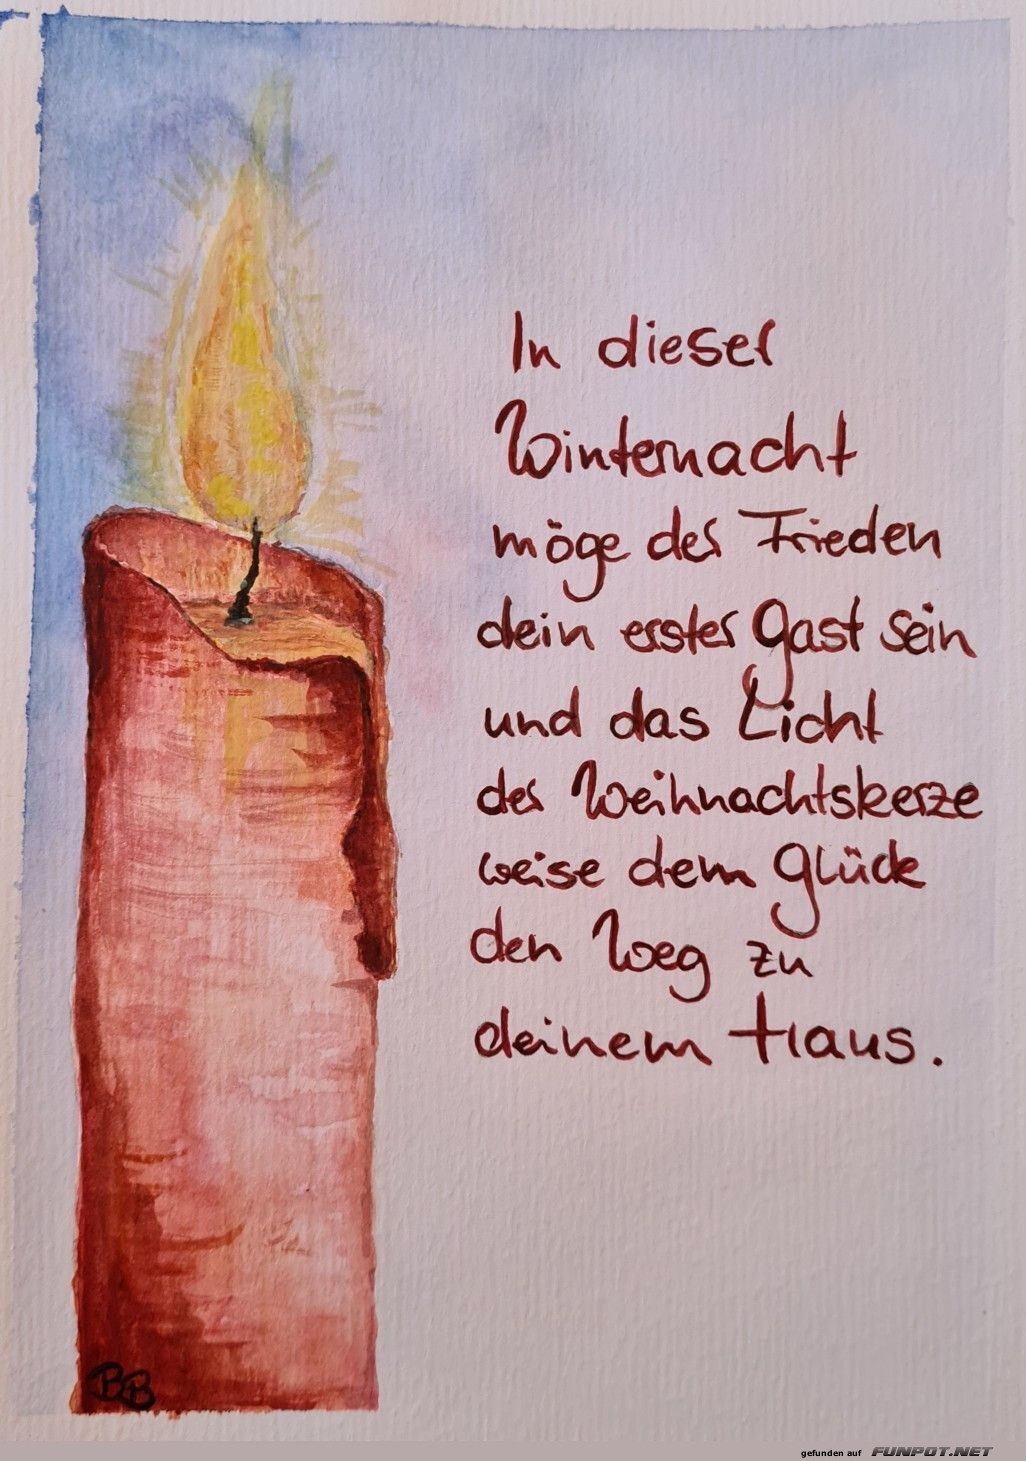 In dieser
Winternacht
möge der Frieden
dein erster Gast sein
und das Licht
der Weihnachtskerze
weise dem Glück
den Weg zu
deinem Haus.
BB
gefunden auf FUNPOT.NET